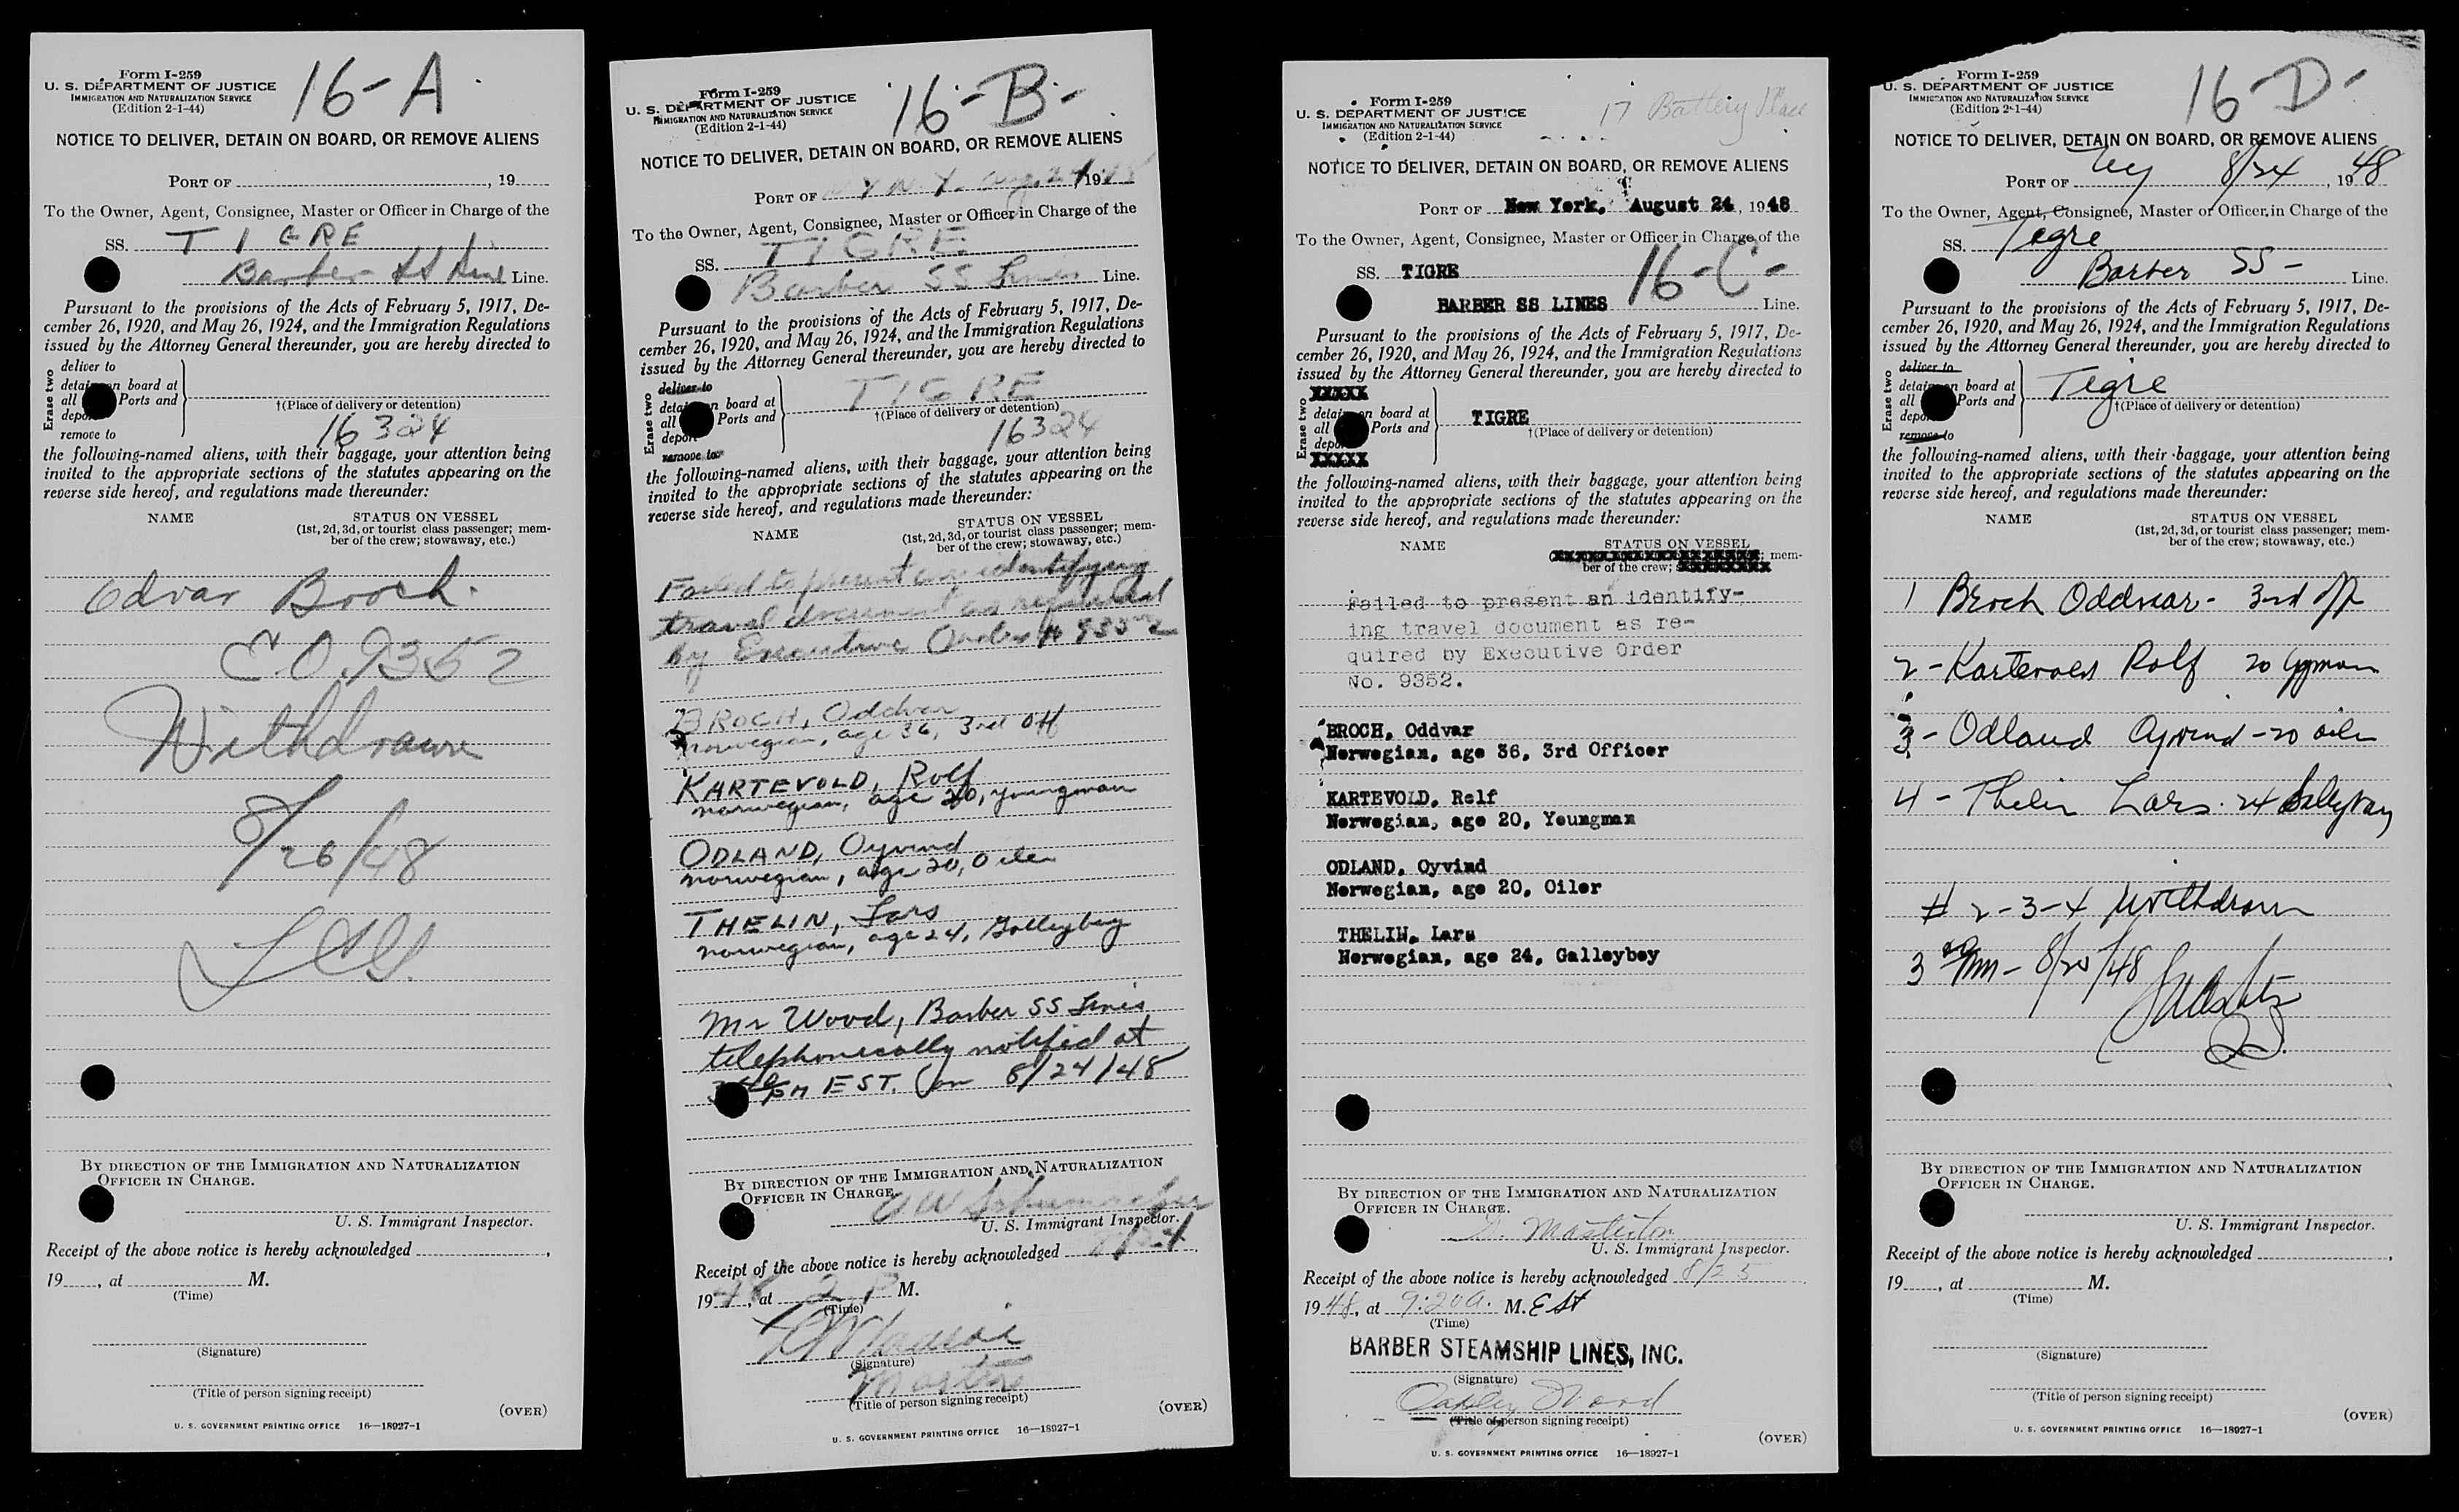 Form I-259
U. S. DEPARTMENT OF JUSTICE
IMMIGRATION AND NATURALIZATION SERVICE
(Edition 2-1-44)
16-A.
NOTICE TO DELIVER, DETAIN ON BOARD, OR REMOVE ALIENS
PORT OF , 19
To the Owner, Agent, Consignee, Master or Officer in Charge of the
SS. TIGRE
Barber SS Line Line.
Pursuant to the provisions of the Acts of February 5, 1917, De-
cember 26, 1920, and May 26, 1924, and the Immigration Regulations
issued by the Attorney General thereunder, you are hereby directed to
Erase two
deliver to
detain on board at
all Ports and
depo
remove to
†(Place of delivery or detention)
16324
the following-named aliens, with their baggage, your attention being
invited to the appropriate sections of the statutes appearing on the
reverse side hereof, and regulations made thereunder:
NAME STATUS ON VESSEL
(1st, 2d, 3d, or tourist class passenger; mem-
ber of the crew; stowaway, etc.)
Odvar Broch.
E.O. 9352
Withdrawn
8/26/48
BY DIRECTION OF THE IMMIGRATION AND NATURALIZATION
OFFICER IN CHARGE.
U. S. Immigrant Inspector.
Receipt of the above notice is hereby acknowledged ,
19 , at M.
(Time)
(Signature)
(Title of person signing receipt)
(OVER)
U. S. GOVERNMENT PRINTING OFFICE 16—18927-1
Form I-259
U. S. DEPARTMENT OF JUSTICE
IMMIGRATION AND NATURALIZATION SERVICE
(Edition 2-1-44)
16-B-
NOTICE TO DELIVER, DETAIN ON BOARD, OR REMOVE ALIENS
PORT OF N.Y. Aug. 24 1948
To the Owner, Agent, Consignee, Master or Officer in Charge of the
SS. TIGRE
Barber SS Lines Line.
Pursuant to the provisions of the Acts of February 5, 1917, De-
cember 26, 1920, and May 26, 1924, and the Immigration Regulations
issued by the Attorney General thereunder, you are hereby directed to
Erase two
deliver to
detain on board at
all Ports and
deport
remove to
TIGRE
†(Place of delivery or detention)
16324
the following-named aliens, with their baggage, your attention being
invited to the appropriate sections of the statutes appearing on the
reverse side hereof, and regulations made thereunder:
NAME STATUS ON VESSEL
(1st, 2d, 3d, or tourist class passenger; mem-
ber of the crew; stowaway, etc.)
Failed to present an identifying
travel document as required
by Executive Order # 9352
BROCH, Oddvar
Norwegian, age 36, 3rd Off
KARTEVOLD, Rolf
norwegian, age 20, youngman
ODLAND, Oyvind
norwegian, age 20, Oiler
THELIN, Lars
norwegian, age 24, Galleyboy
Mr Wood, Barber SS Lines
telephonecally notified at
PM EST. on 8/24/48
BY DIRECTION OF THE IMMIGRATION AND NATURALIZATION
OFFICER IN CHARGE.
U. S. Immigrant Inspector.
Receipt of the above notice is hereby acknowledged 8/24,
1948, at 2 P M.
(Time)
(Signature)
Master
(Title of person signing receipt)
(OVER)
U. S. GOVERNMENT PRINTING OFFICE 16—18927-1
17 Battery Place
Form I-259
U. S. DEPARTMENT OF JUSTICE
IMMIGRATION AND NATURALIZATION SERVICE
(Edition 2-1-44)
NOTICE TO DELIVER, DETAIN ON BOARD, OR REMOVE ALIENS
PORT OF New York, August 24, 1948
To the Owner, Agent, Consignee, Master or Officer in Charge of the
SS. TIGRE 16-C-
BARBER SS LINES Line.
Pursuant to the provisions of the Acts of February 5, 1917, De-
cember 26, 1920, and May 26, 1924, and the Immigration Regulations
issued by the Attorney General thereunder, you are hereby directed to
Erase two
XXXXX
detain on board at
all Ports and
depo
XXXXX
TIGRE
†(Place of delivery or detention)
the following-named aliens, with their baggage, your attention being
invited to the appropriate sections of the statutes appearing on the
reverse side hereof, and regulations made thereunder:
NAME STATUS ON VESSEL
mem-
ber of the crew;
Failed to present an identify-
ing travel document as re-
quired by Executive Order
No. 9352.
BROCH, Oddvar
Norwegian, age 36, 3rd Officer
KARTEVOLD, Rolf
Norwegian, age 20, Youngman
ODLAND, Oyvind
Norwegian, age 20, Oiler
THELIN, Lars
Norwegian, age 24, Galleyboy
BY DIRECTION OF THE IMMIGRATION AND NATURALIZATION
OFFICER IN CHARGE.
Masterton
U. S. Immigrant Inspector.
Receipt of the above notice is hereby acknowledged 8/25,
1948, at 9:20 a. M. EST
(Time)
BARBER STEAMSHIP LINES, INC.
(Signature)
Oakley Wood
(Title of person signing receipt)
(OVER)
U. S. GOVERNMENT PRINTING OFFICE 16—18927-1
Form I-259
U. S. DEPARTMENT OF JUSTICE
IMMIGRATION AND NATURALIZATION SERVICE
(Edition 2-1-44)
16-D-
NOTICE TO DELIVER, DETAIN ON BOARD, OR REMOVE ALIENS
PORT OF NY 8/24, 1948
To the Owner, Agent, Consignee, Master or Officer in Charge of the
SS. Tegre
Barber SS - Line.
Pursuant to the provisions of the Acts of February 5, 1917, De-
cember 26, 1920, and May 26, 1924, and the Immigration Regulations
issued by the Attorney General thereunder, you are hereby directed to
Erase two
deliver to
detain on board at
all Ports and
depo
remove to
Tegre
†(Place of delivery or detention)
the following-named aliens, with their baggage, your attention being
invited to the appropriate sections of the statutes appearing on the
reverse side hereof, and regulations made thereunder:
NAME STATUS ON VESSEL
(1st, 2d, 3d, or tourist class passenger; mem-
ber of the crew; stowaway, etc.)
1 Broch Oddvar - 3rd off
2 - Kartevold Rolf 20 Ygman
3 - Odland Oyvind - 20 oiler
4 - Thelin Lars. 24 Galleyboy
# 2-3-4 Withdrawn
BY DIRECTION OF THE IMMIGRATION AND NATURALIZATION
OFFICER IN CHARGE.
U. S. Immigrant Inspector.
Receipt of the above notice is hereby acknowledged ,
19 , at M.
(Time)
(Signature)
(Title of person signing receipt)
(OVER)
U. S. GOVERNMENT PRINTING OFFICE 16—18927-1